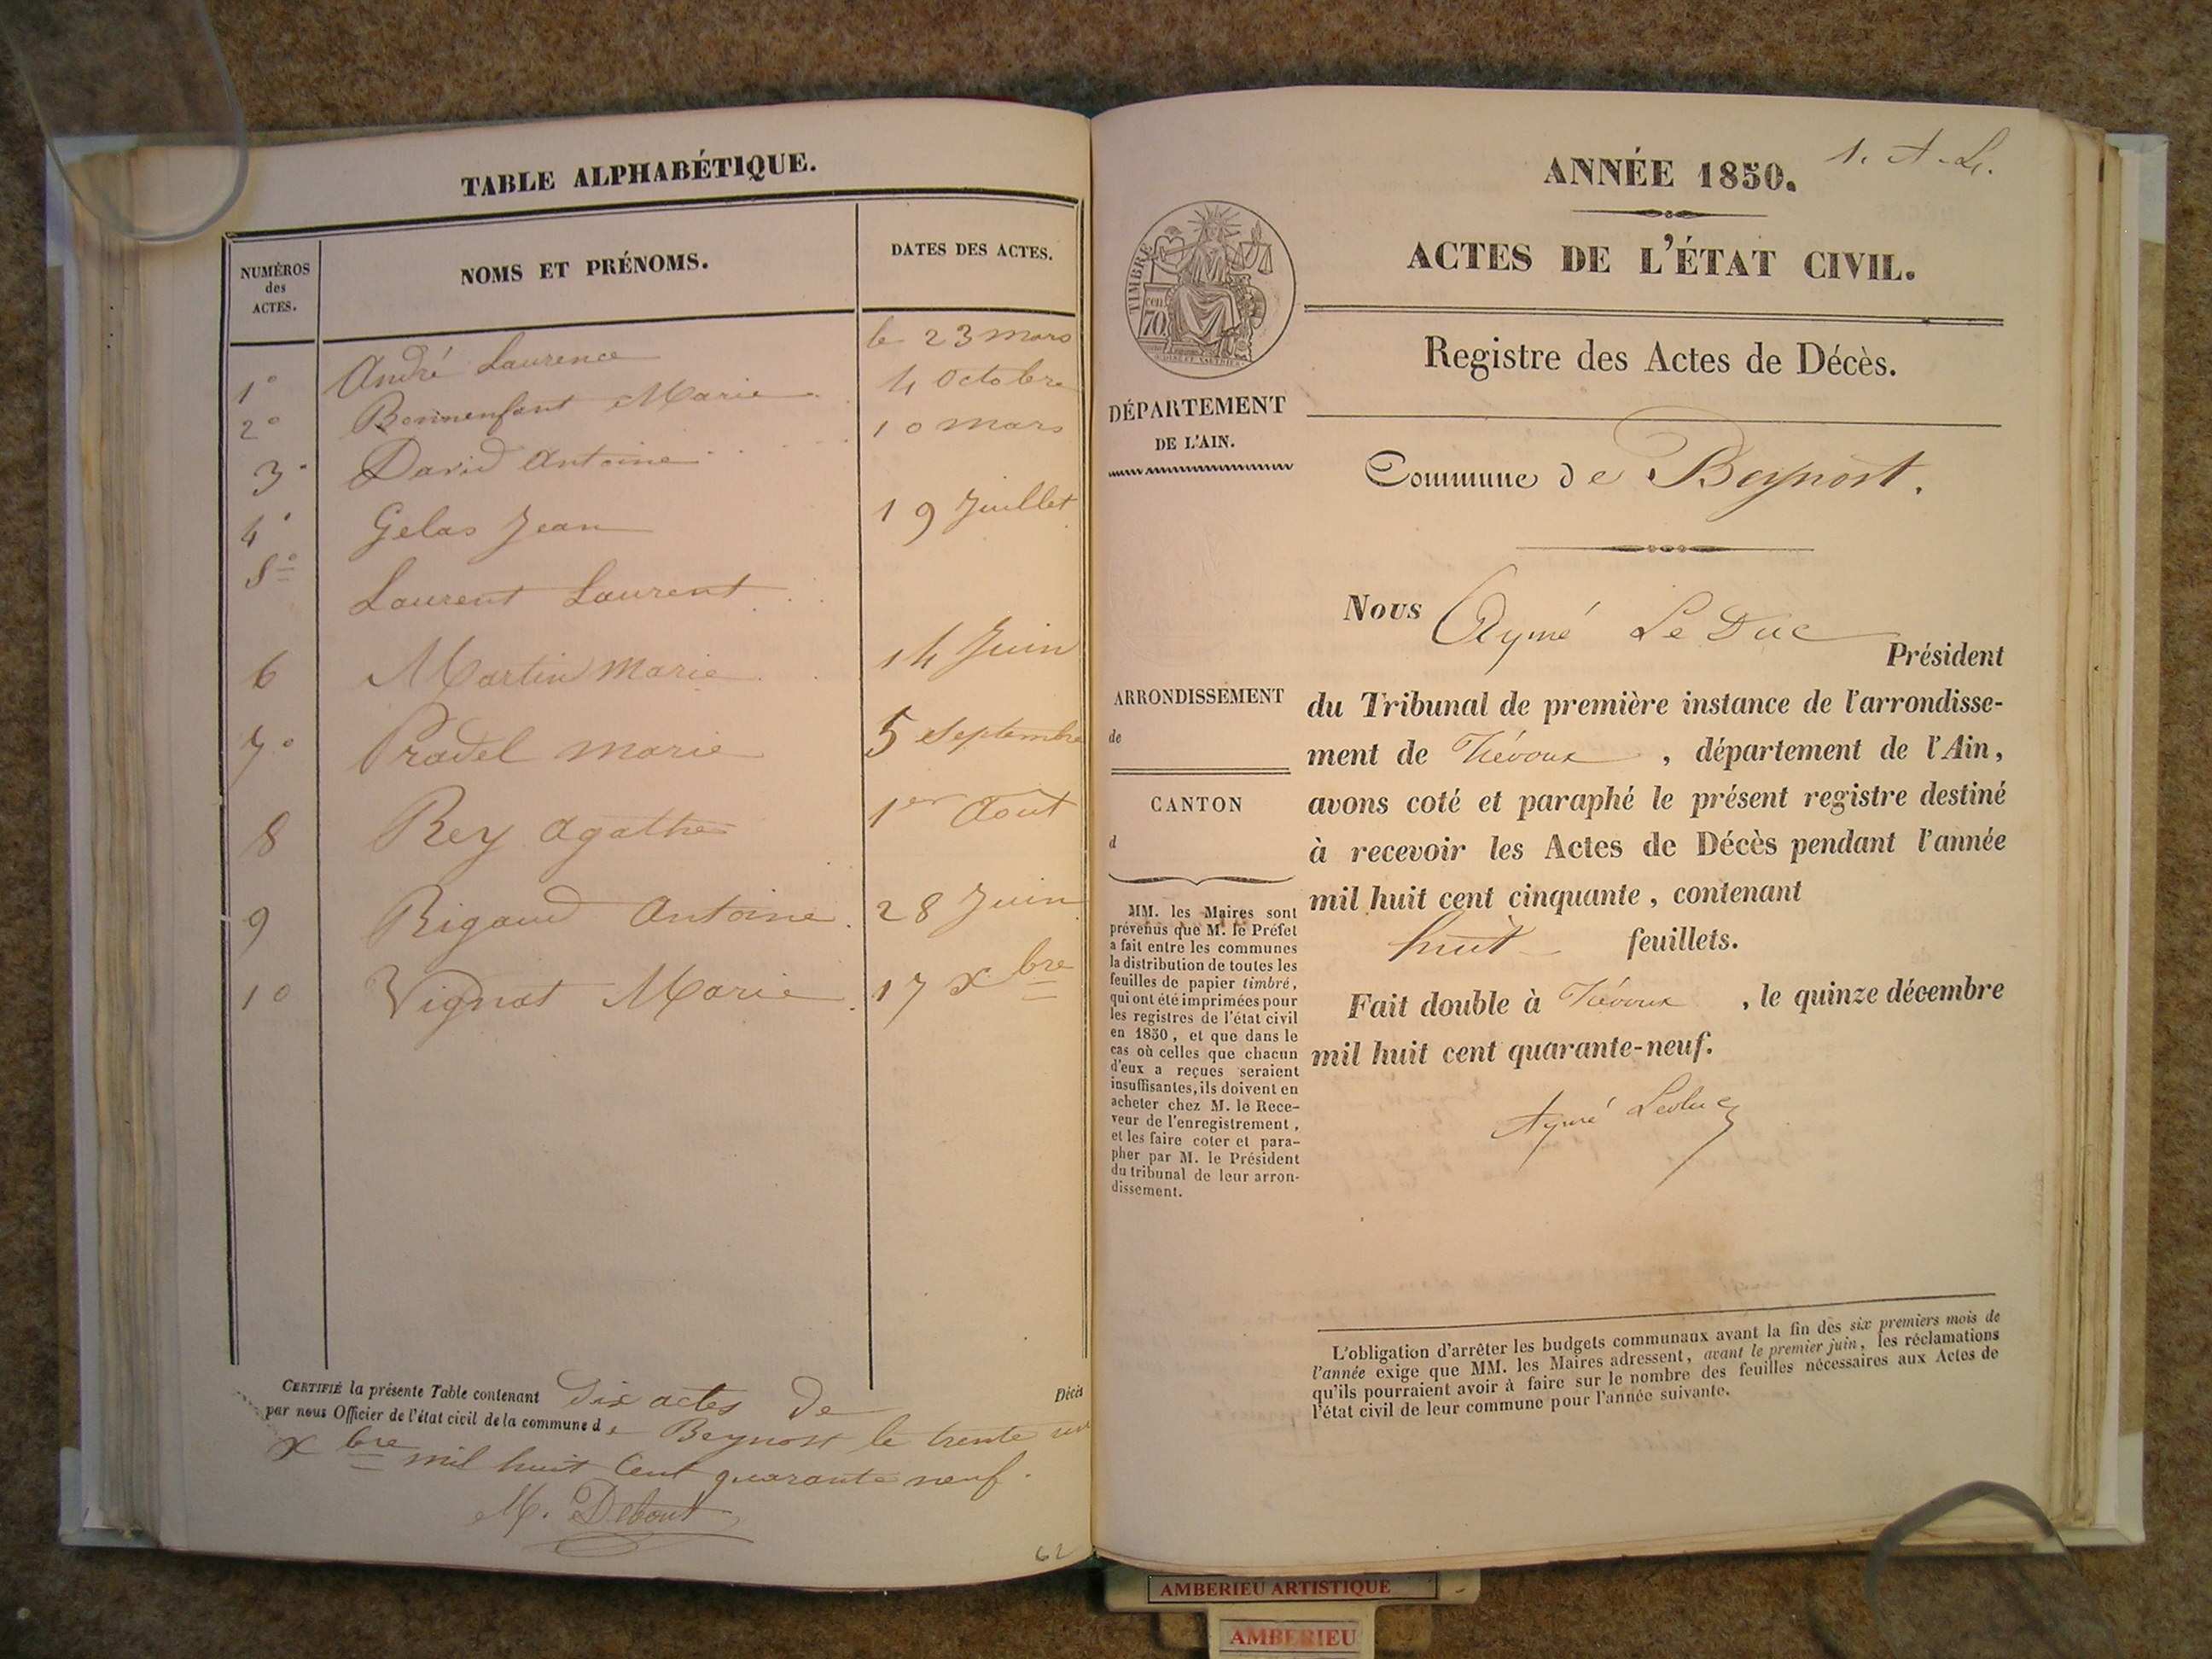 TABLE ALPHABÉTIQUE.
NUMÉROS
des
ACTES.
NOMS ET PRÉNOMS.
DATES DES ACTES.
1° André Laurence le 23 mars
2° Bonnenfant Marie 4 Octobre
3° David Antoine 10 mars
4° Gelas Jean 19 Juillet
5° Laurent Laurent
6 Martin Marie 14 Juin
7° Pradel Marie 5 Septembre
8 Rey Agathe 1er Août
9 Rigaud Antoine 28 Juin
10 Vignat Marie 17 Xbre
CERTIFIÉ la présente Table contenant Dix actes De Décès
par nous Officier de l'état civil de la commune de Beynost le trente un
Xbre mil huit Cent quarante neuf.
M. Debout
62
ANNÉE 1850.
1. A. L.
ACTES DE L'ÉTAT CIVIL.
TIMBRE
cen
70.
Registre des Actes de Décès.
DÉPARTEMENT
DE L'AIN.
Commune de Beynost.
Nous Aymé Le Duc
Président
ARRONDISSEMENT
de
CANTON
d
du Tribunal de première instance de l'arrondisse-
ment de Trévoux , département de l'Ain,
avons coté et paraphé le présent registre destiné
à recevoir les Actes de Décès pendant l'année
mil huit cent cinquante, contenant
huit feuillets.
Fait double à Trévoux , le quinze décembre
mil huit cent quarante-neuf.
Aymé Leduc
MM. les Maires sont
prévenus que M. le Préfet
a fait entre les communes
la distribution de toutes les
feuilles de papier timbré,
qui ont été imprimées pour
les registres de l'état civil
en 1850, et que dans le
cas où celles que chacun
d'eux a reçues seraient
insuffisantes, ils doivent en
acheter chez M. le Rece-
veur de l'enregistrement,
et les faire coter et para-
pher par M. le Président
du tribunal de leur arron-
dissement.
L'obligation d'arrêter les budgets communaux avant la fin des six premiers mois de
l'année exige que MM. les Maires adressent, avant le premier juin, les réclamations
qu'ils pourraient avoir à faire sur le nombre des feuilles nécessaires aux Actes de
l'état civil de leur commune pour l'année suivante.
AMBERIEU ARTISTIQUE
AMBERIEU